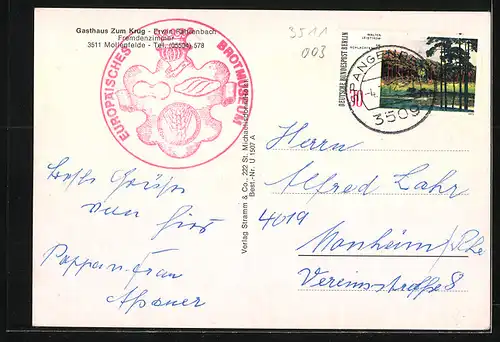 Gasthaus Zum Krug - Erwin
Fremdenzimmer
3511 Mollenfelde - Tel. (05504) 578
EUROPÄISCHES BROTMUSEUM
3511
003
WALTER
LEISTIKOW
SCHLACHTENSEE
DEUTSCHE BUNDESPOST BERLIN
50
3509
Verlag Stramm & Co., 222 St. Michaelisdonn
Best.-Nr. U 1507 A
Beste Grüße
von hier
Herrn
Alfred Lahr
4019
Monheim/Rhe
Vereinsstraße 8